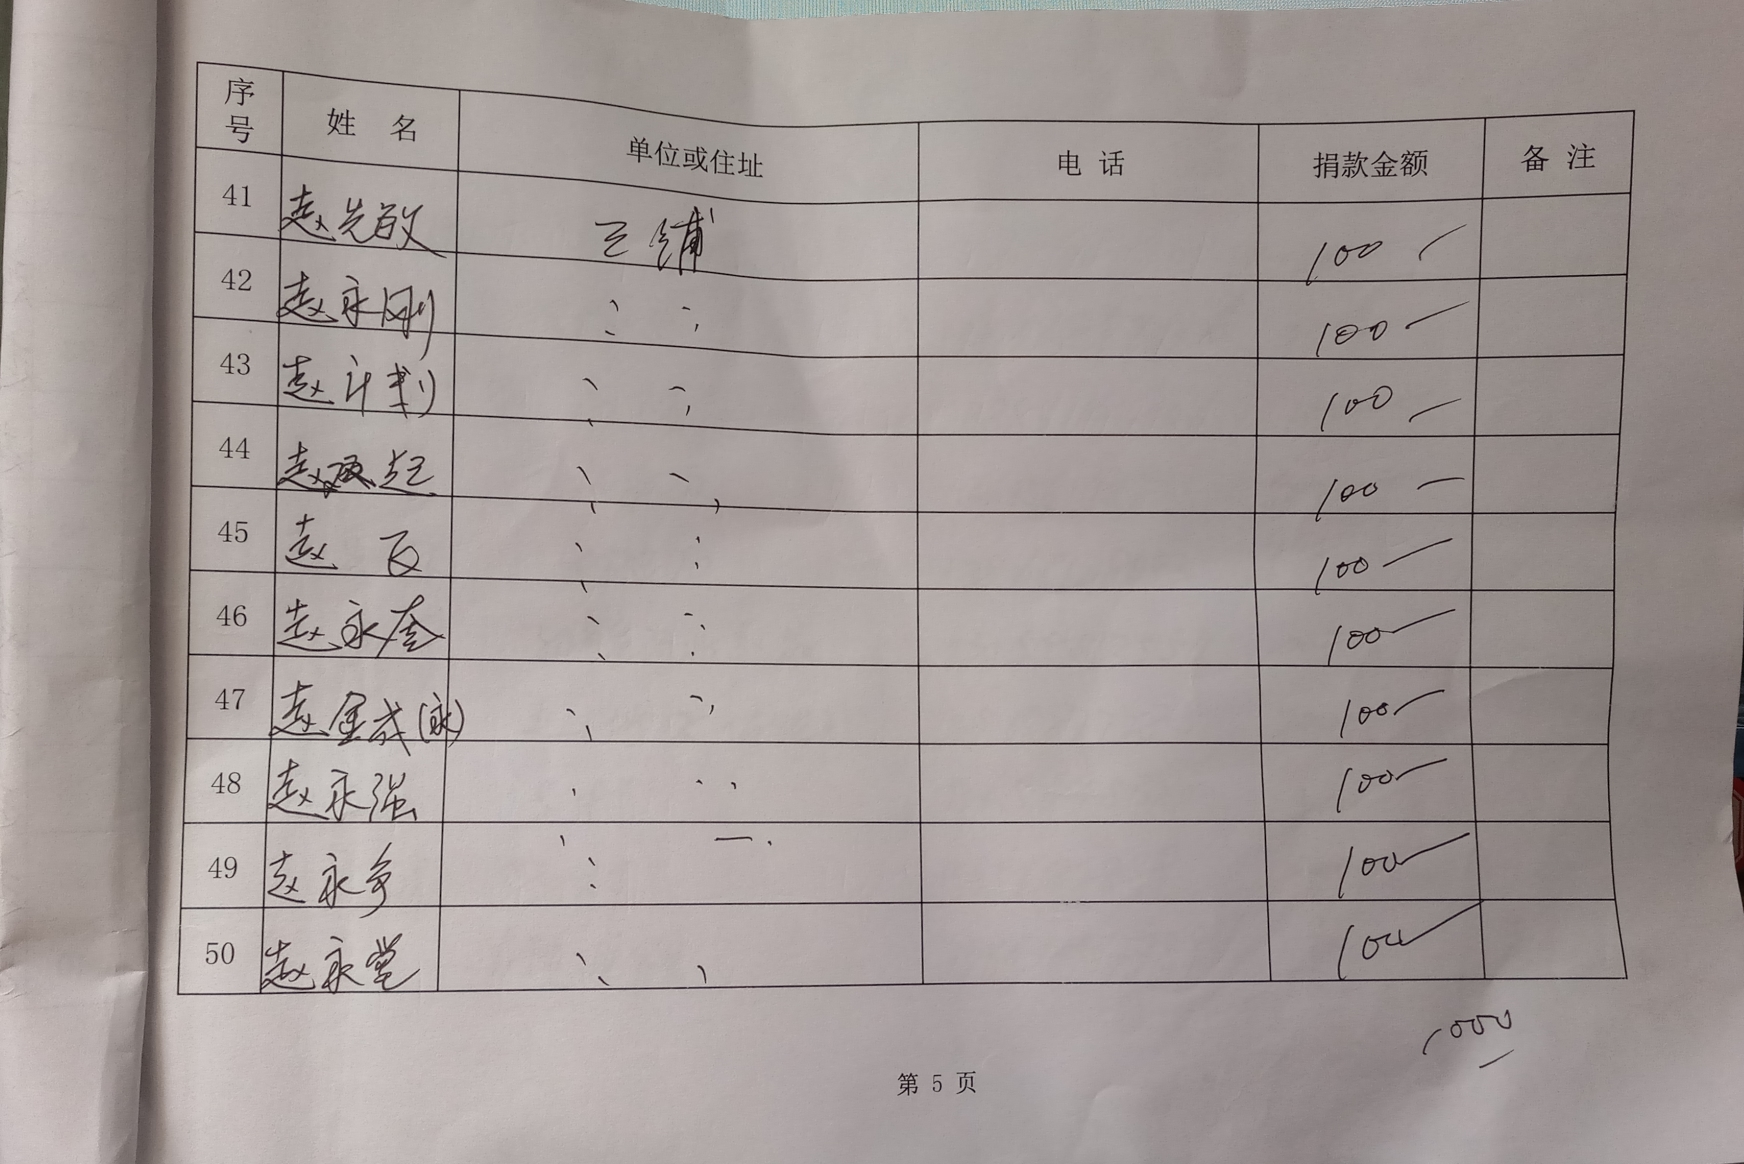 序号 姓 名 单位或住址 电 话 捐款金额 备 注
41 赵先敬 三铺 100
42 赵永刚 100
43 赵计划 100
44 赵 起 100
45 赵 100
46 赵永奎 100
47 赵金成(永) 100
48 赵永强 100
49 赵永争 100
50 赵永堂 100
1000
第 5 页